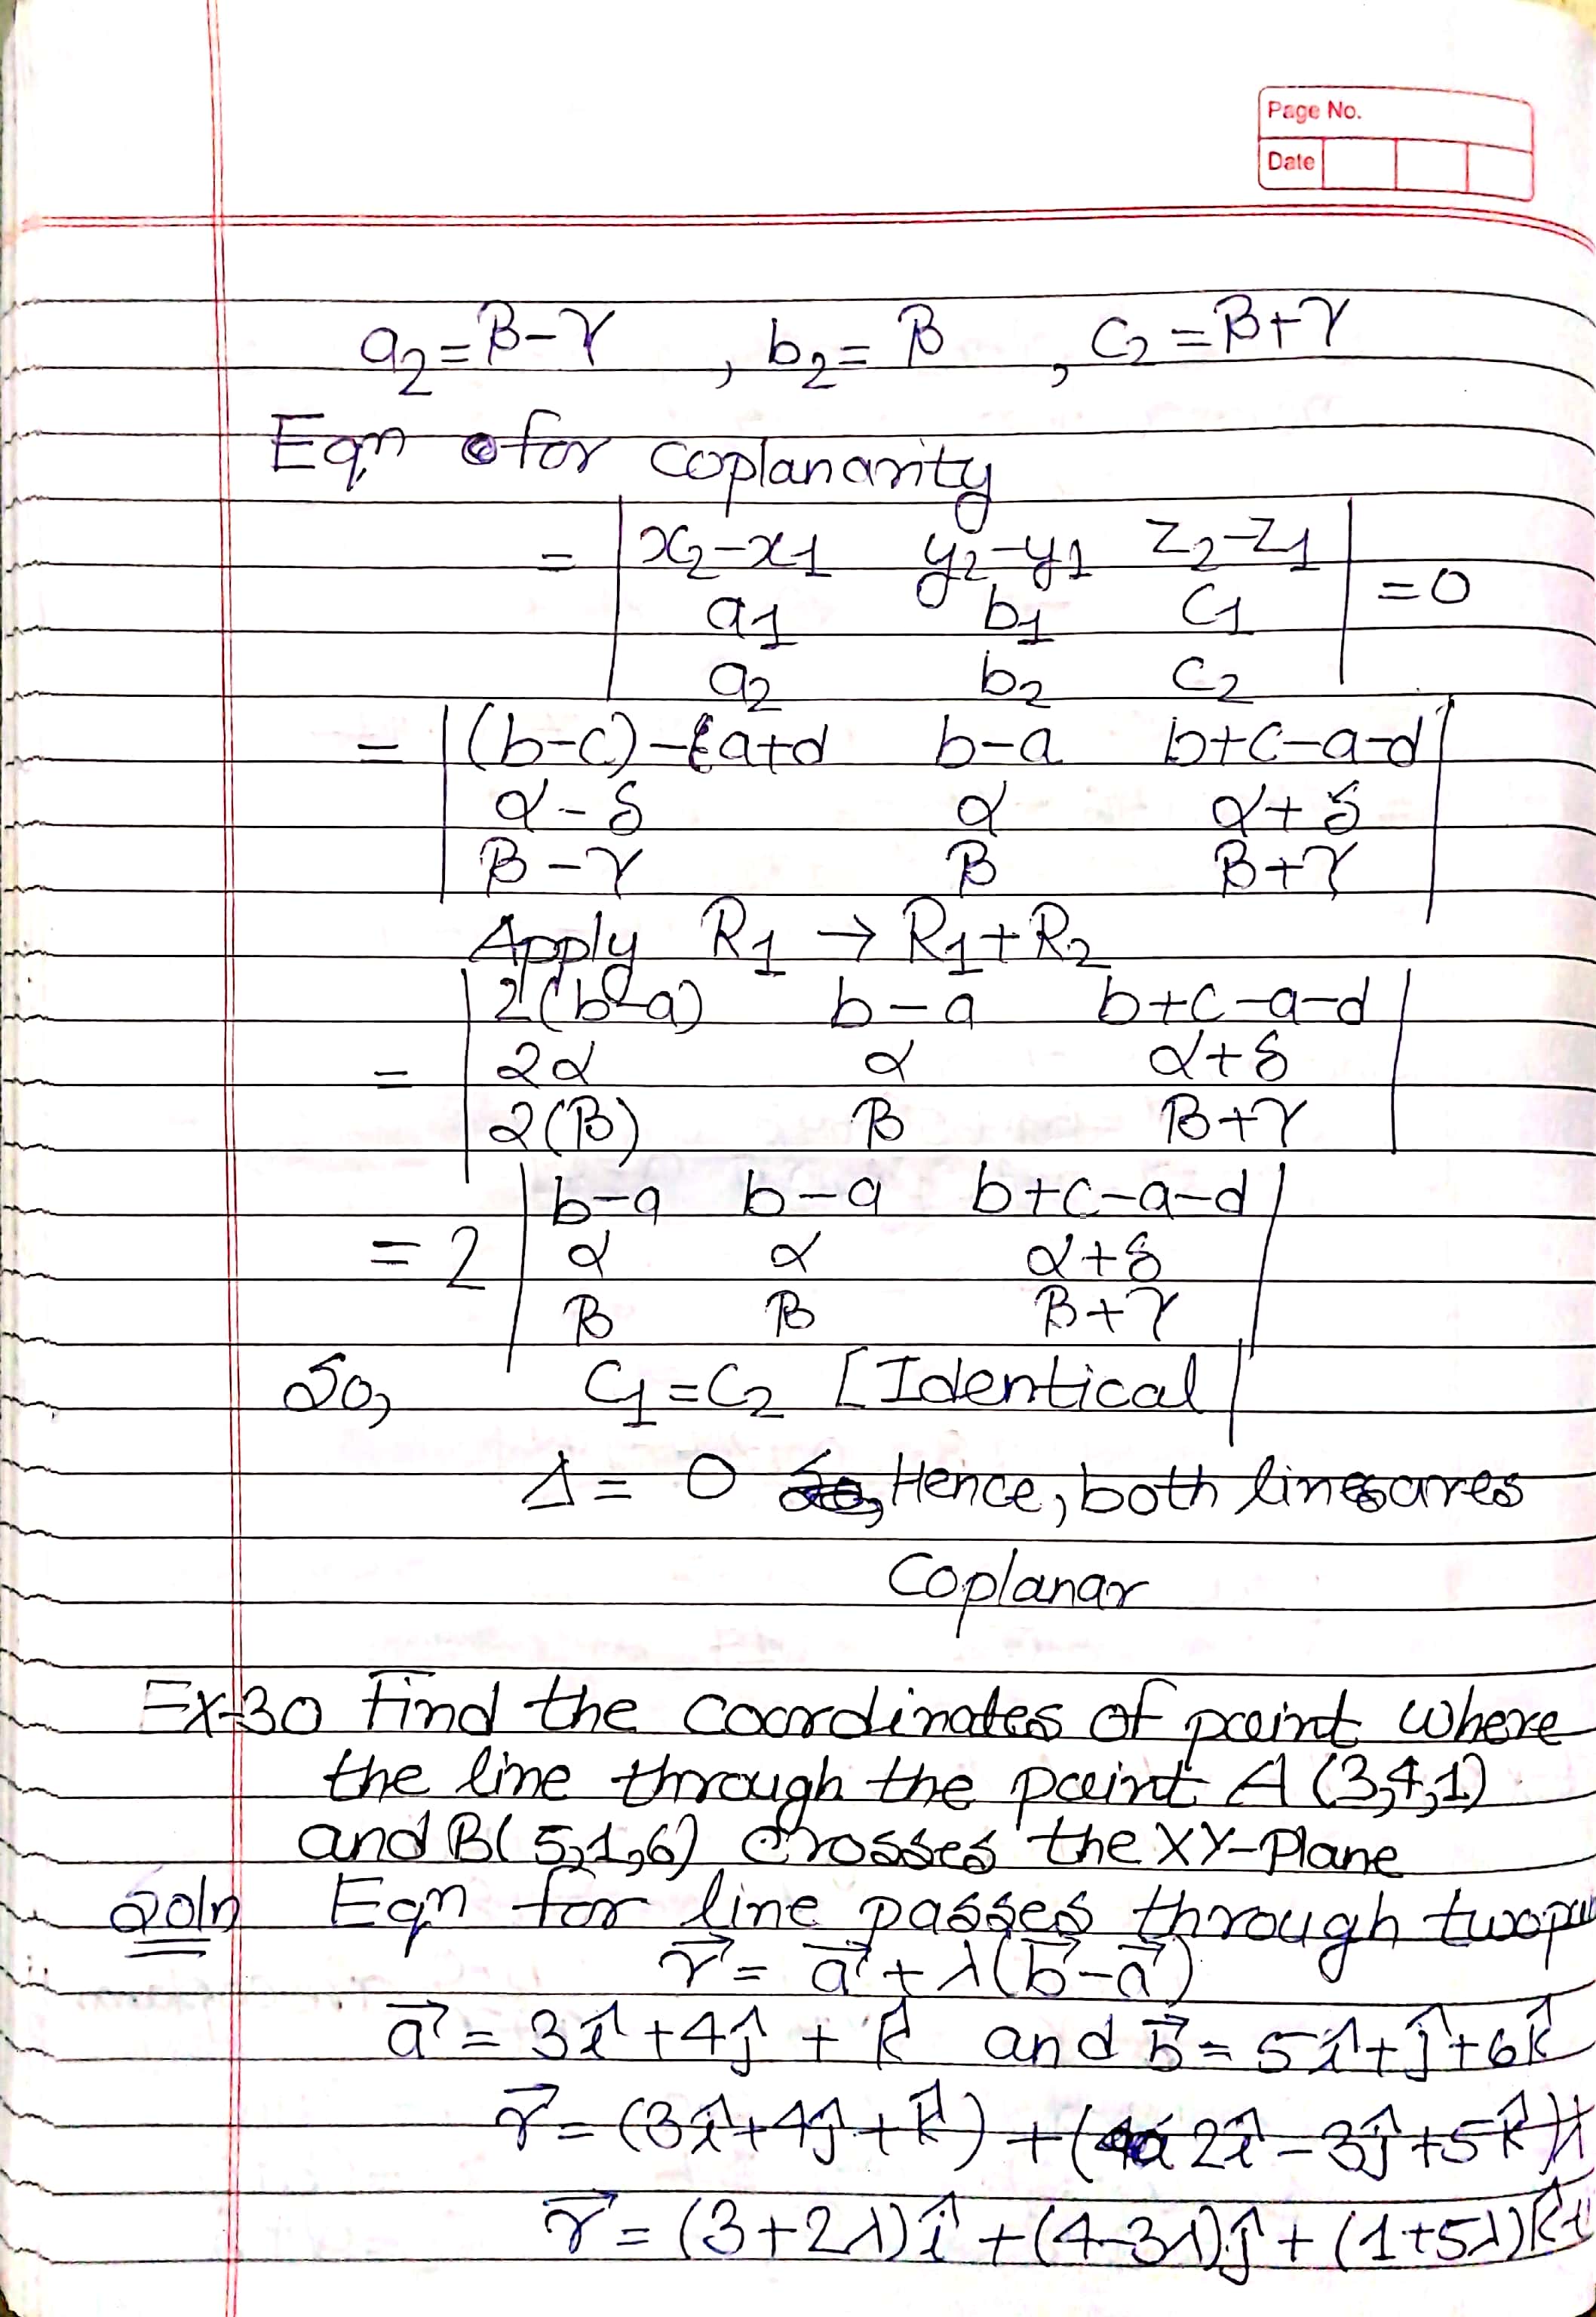 Page No.
Date
a2 = β-γ , b2 = β , c2 = β+γ
Eqn for coplanarity
= | x2-x1 y2-y1 z2-z1 |
a1 b1 c1 = 0
a2 b2 c2
= | (b-c)-a+d b-a b+c-a-d |
α-δ α α+δ
β-γ β β+γ
Apply R1 → R1+R2
| 2(b-a) b-a b+c-a-d |
= 2α α α+δ
2(β) β β+γ
| b-a b-a b+c-a-d |
= 2 α α α+δ
β β β+γ
So, C1 = C2 [Identical]
Δ = 0 Hence, both lines ares
Coplanar
Ex-30 Find the coordinates of point where
the line through the point A (3,4,1)
and B(5,1,6) crosses the XY-Plane
Soln Eqn for line passes through two
r⃗ = a⃗ + λ(b⃗-a⃗)
a⃗ = 3î+4ĵ + k̂ and b⃗ = 5î+ĵ+6k̂
r⃗ = (3î+4ĵ+k̂) + (2î-3ĵ+5k̂)λ
r⃗ = (3+2λ)î + (4-3λ)ĵ + (1+5λ)k̂